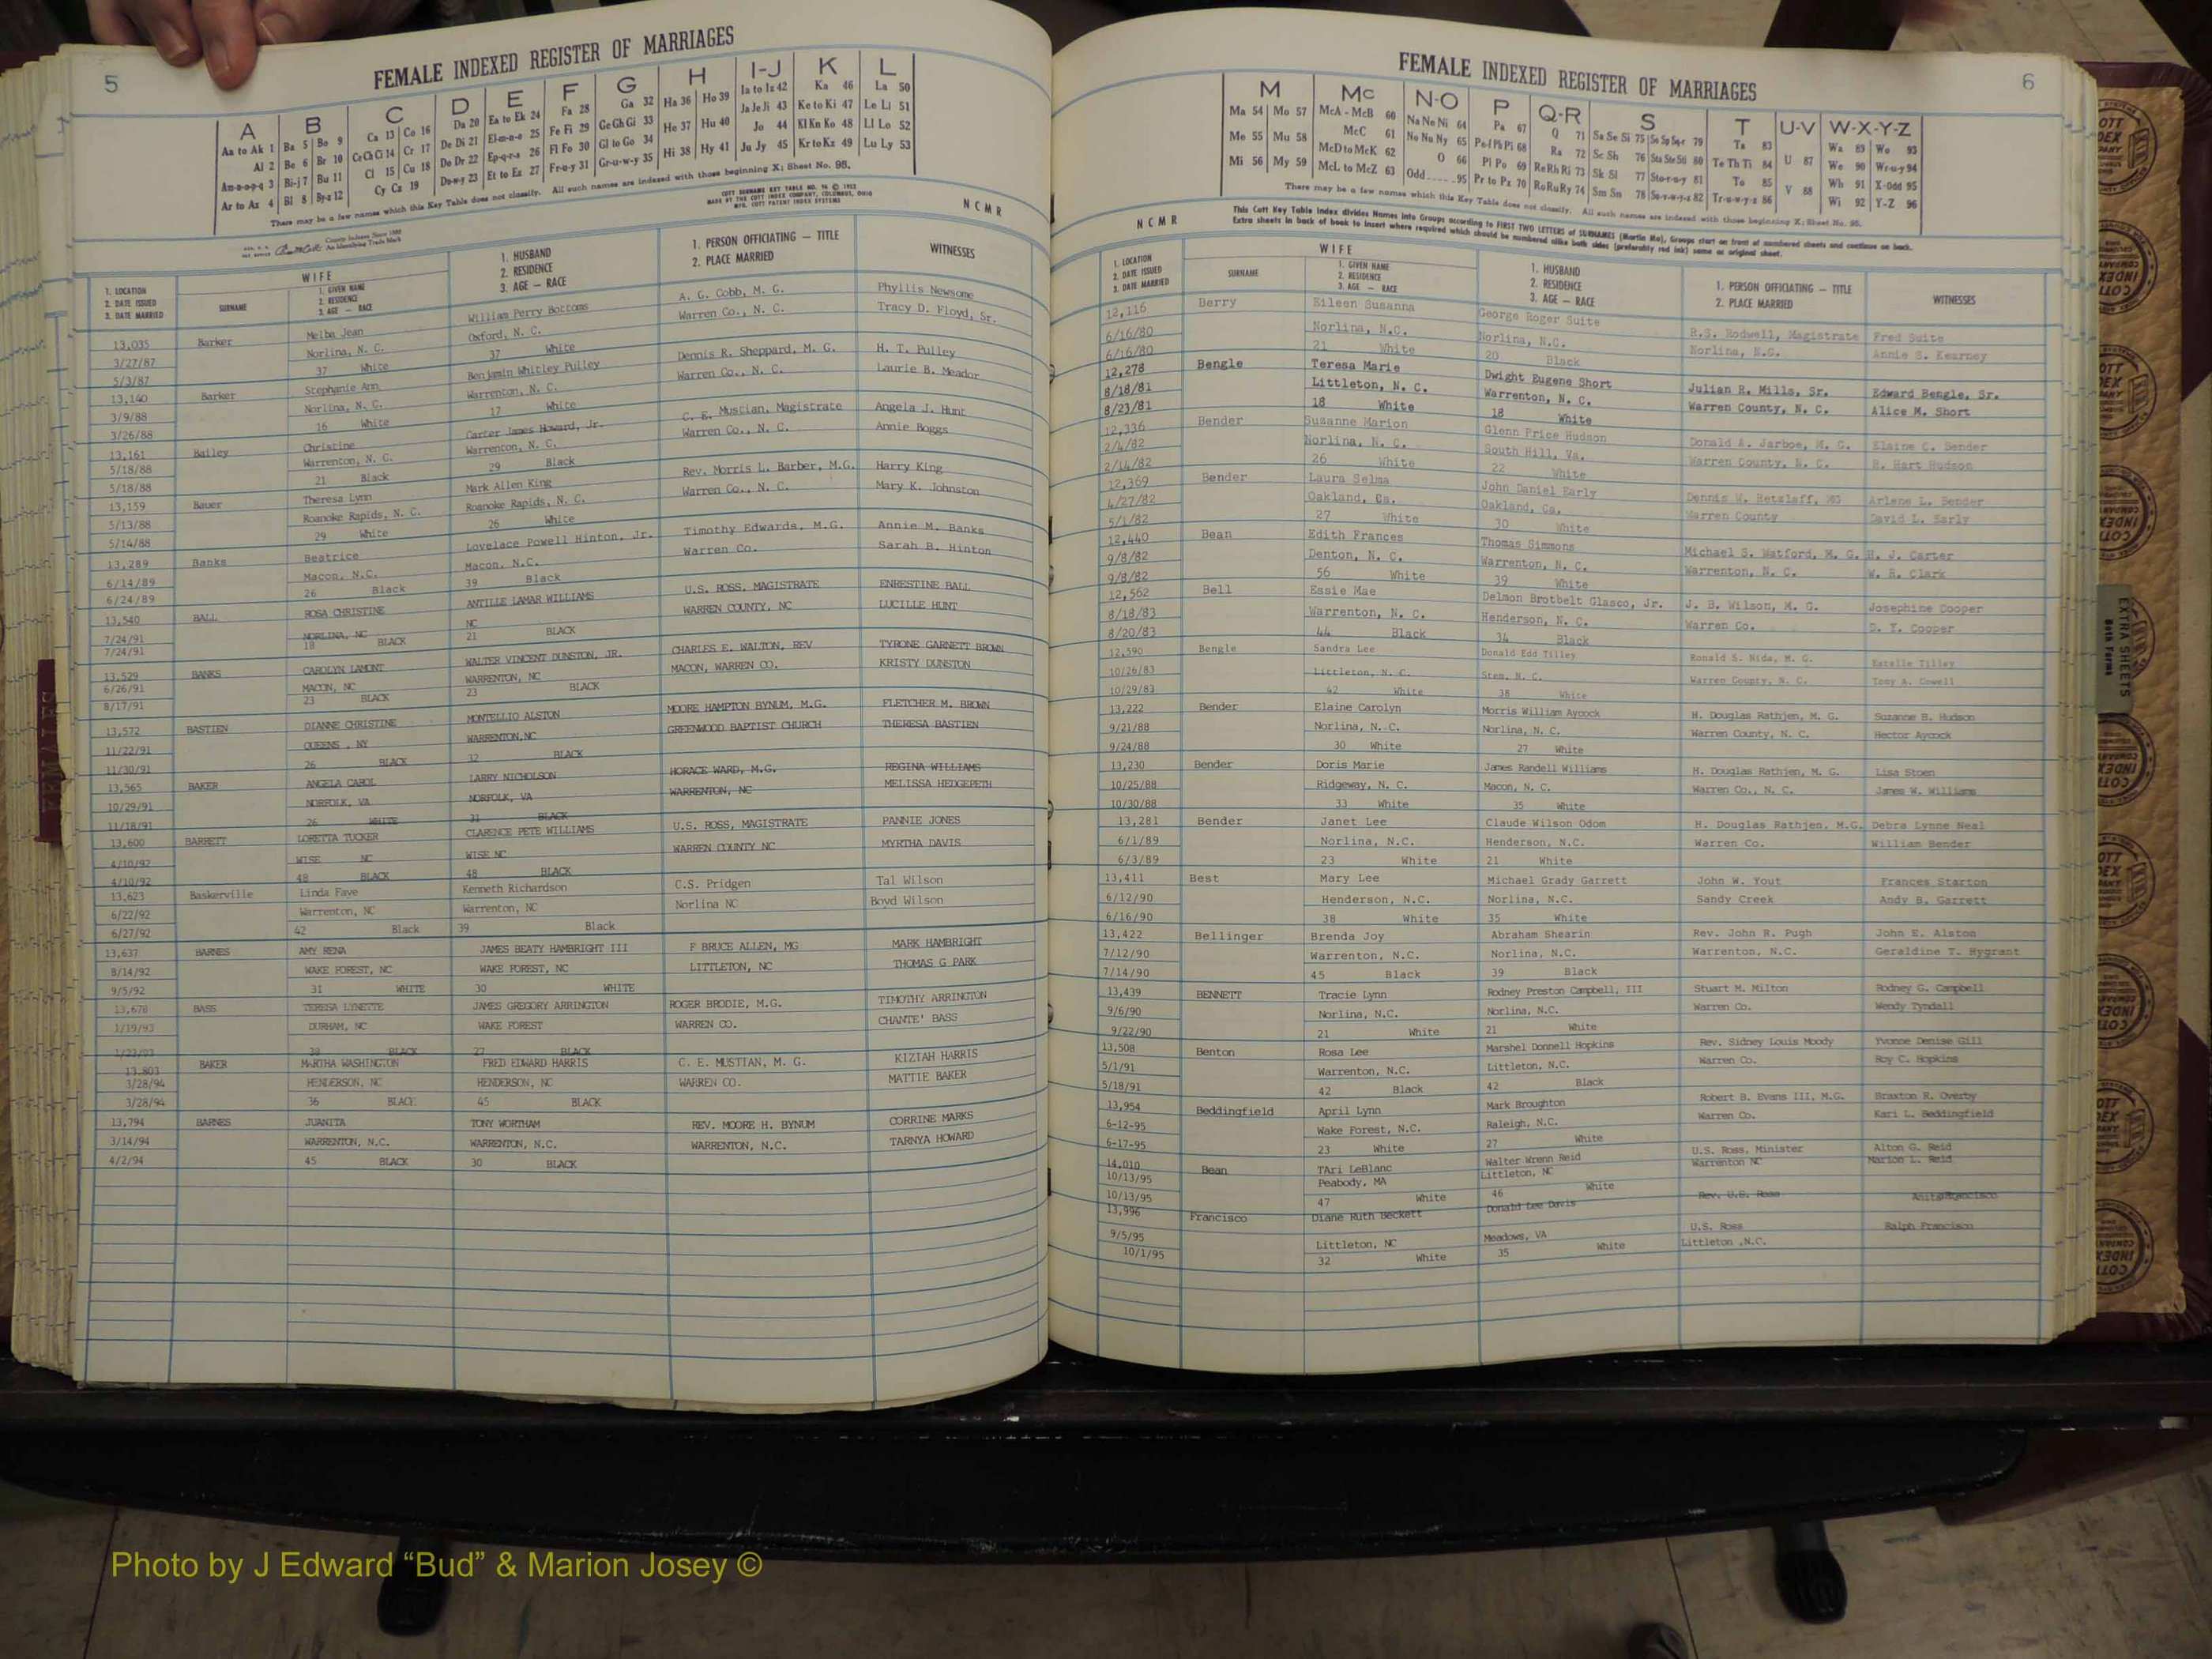 5
FEMALE INDEXED REGISTER OF MARRIAGES
A B C D E F G H I-J K L
Aa to Ak 1 Ba 5 Bo 9 Ca 13 Co 16 Da 20 Ea to Ek 24 Fa 28 Ga 32 Ha 36 Ho 39 Ia to Iz 42 Ka 46 La 50
Al 2 Be 6 Br 10 Ce Ch Ci 14 Cr 17 De Di 21 El-m-n-o 25 Fe Fi 29 Ge Gh Gi 33 He 37 Hu 40 Ja Je Ji 43 Ke to Ki 47 Le Li 51
Am-n-o-p-q 3 Bi-j 7 Bu 11 Cl 15 Cu 18 Do Dr 22 Ep-q-r-s 26 Fl Fo 30 Gl to Go 34 Hi 38 Hy 41 Jo 44 Kl Kn Ko 48 Ll Lo 52
Ar to Az 4 Bl 8 By-z 12 Cy Cz 19 Du-w-y 23 Et to Ez 27 Fr-u-y 31 Gr-u-w-y 35 Ju Jy 45 Kr to Kz 49 Lu Ly 53
There may be a few names which this Key Table does not classify. All such names are indexed with those beginning X; Sheet No. 95.
COTT SURNAME KEY TABLE NO. 96 © 1952
MADE BY THE COTT INDEX COMPANY, COLUMBUS, OHIO
MFG. COTT PATENT INDEX SYSTEMS
County Indexes Since 1888
An Identifying Trade Mark
N C M R
1. LOCATION
2. DATE ISSUED
3. DATE MARRIED
WIFE
SURNAME
1. GIVEN NAME
2. RESIDENCE
3. AGE — RACE
1. HUSBAND
2. RESIDENCE
3. AGE — RACE
1. PERSON OFFICIATING — TITLE
2. PLACE MARRIED
WITNESSES
13,035 Barker Melba Jean William Perry Bottoms A. G. Cobb, M. G. Phyllis Newsome
3/27/87 Norlina, N. C. Oxford, N. C. Warren Co., N. C. Tracy D. Floyd, Sr.
5/3/87 37 White 37 White
13,140 Barker Stephanie Ann Benjamin Whitley Pulley Dennis R. Sheppard, M. G. H. T. Pulley
3/9/88 Norlina, N. C. Warrenton, N. C. Warren Co., N. C. Laurie B. Meador
3/26/88 16 White 17 White
13,161 Bailey Christine Carter James Howard, Jr. C. E. Mustian, Magistrate Angela J. Hunt
5/18/88 Warrenton, N. C. Warrenton, N. C. Warren Co., N. C. Annie Boggs
5/18/88 21 Black 29 Black
13,159 Bauer Theresa Lynn Mark Allen King Rev. Morris L. Barber, M.G. Harry King
5/13/88 Roanoke Rapids, N. C. Roanoke Rapids, N. C. Warren Co., N. C. Mary K. Johnston
5/14/88 29 White 26 White
13,289 Banks Beatrice Lovelace Powell Hinton, Jr. Timothy Edwards, M.G. Annie M. Banks
6/14/89 Macon, N.C. Macon, N.C. Warren Co. Sarah B. Hinton
6/24/89 26 Black 39 Black
13,540 BALL ROSA CHRISTINE ANTILLE LAMAR WILLIAMS U.S. ROSS, MAGISTRATE ENRESTINE BALL
7/24/91 NORLINA, NC NC WARREN COUNTY, NC LUCILLE HUNT
7/24/91 18 BLACK 21 BLACK
13,529 BANKS CAROLYN LAMONT WALTER VINCENT DUNSTON, JR. CHARLES E. WALTON, REV TYRONE GARNETT BROWN
6/26/91 MACON, NC WARRENTON, NC MACON, WARREN CO. KRISTY DUNSTON
8/17/91 23 BLACK 23 BLACK
13,572 BASTIEN DIANNE CHRISTINE MONTELLIO ALSTON MOORE HAMPTON BYNUM, M.G. FLETCHER M. BROWN
11/22/91 QUEENS , NY WARRENTON,NC GREENWOOD BAPTIST CHURCH THERESA BASTIEN
11/30/91 26 BLACK 32 BLACK
13,565 BAKER ANGELA CAROL LARRY NICHOLSON HORACE WARD, M.G. REGINA WILLIAMS
10/29/91 NORFOLK, VA NORFOLK, VA WARRENTON, NC MELISSA HEDGEPETH
11/18/91 26 WHITE 31 BLACK
13,600 BARRETT LORETTA TUCKER CLARENCE PETE WILLIAMS U.S. ROSS, MAGISTRATE PANNIE JONES
4/10/92 WISE NC WISE NC WARREN COUNTY NC MYRTHA DAVIS
4/10/92 48 BLACK 48 BLACK
13,623 Baskerville Linda Faye Kenneth Richardson C.S. Pridgen Tal Wilson
6/22/92 Warrenton, NC Warrenton, NC Norlina NC Boyd Wilson
6/27/92 42 Black 39 Black
13,637 BARNES AMY RENA JAMES BEATY HAMBRIGHT III F BRUCE ALLEN, MG MARK HAMBRIGHT
8/14/92 WAKE FOREST, NC WAKE FOREST, NC LITTLETON, NC THOMAS G PARK
9/5/92 31 WHITE 30 WHITE
13,678 BASS TERESA LYNETTE JAMES GREGORY ARRINGTON ROGER BRODIE, M.G. TIMOTHY ARRINGTON
1/19/93 DURHAM, NC WAKE FOREST WARREN CO. CHANTE' BASS
1/23/93 38 BLACK 27 BLACK
13,803 BAKER MARTHA WASHINGTON FRED EDWARD HARRIS C. E. MUSTIAN, M. G. KIZIAH HARRIS
3/28/94 HENDERSON, NC HENDERSON, NC WARREN CO. MATTIE BAKER
3/28/94 36 BLACK 45 BLACK
13,794 BARNES JUANITA TONY WORTHAM REV. MOORE H. BYNUM CORRINE MARKS
3/14/94 WARRENTON, N.C. WARRENTON, N.C. WARRENTON, N.C. TARNYA HOWARD
4/2/94 45 BLACK 30 BLACK
6
FEMALE INDEXED REGISTER OF MARRIAGES
M Mc N-O P Q-R S T U-V W-X-Y-Z
Ma 54 Mo 57 McA - McB 60 Na Ne Ni 64 Pa 67 Q 71 Sa Se Si 75 So Sp Sq-r 79 Ta 83 U 87 Wa 89 Wo 93
Me 55 Mu 58 McC 61 No Nu Ny 65 Pe-f Ph Pi 68 Ra 72 Sc Sh 76 Sta Ste Sti 80 Te Th Ti 84 V 88 We 90 Wr-u-y 94
Mi 56 My 59 McD to McK 62 O 66 Pl Po 69 Re Rh Ri 73 Sk Sl 77 Sto-r-u-y 81 To 85 Wh 91 X-Odd 95
McL to McZ 63 Odd 95 Pr to Pz 70 Ro Ru Ry 74 Sm Sn 78 Su-v-w-y-z 82 Tr-u-w-y-z 86 Wi 92 Y-Z 96
There may be a few names which this Key Table does not classify. All such names are indexed with those beginning X; Sheet No. 95.
N C M R
This Cott Key Table Index divides Names into Groups according to FIRST TWO LETTERS of SURNAMES (Martin Ma), Groups start on front of numbered sheets and continue on back.
Extra sheets in back of book to insert where required which should be numbered alike both sides (preferably red ink) same as original sheet.
1. LOCATION
2. DATE ISSUED
3. DATE MARRIED
WIFE
SURNAME
1. GIVEN NAME
2. RESIDENCE
3. AGE — RACE
1. HUSBAND
2. RESIDENCE
3. AGE — RACE
1. PERSON OFFICIATING — TITLE
2. PLACE MARRIED
WITNESSES
12,116 Berry Eileen Susanna George Roger Suite R.S. Rodwell, Magistrate Fred Suite
6/16/80 Norlina, N.C. Norlina, N.C. Norlina, N.C. Annie S. Kearney
6/16/80 21 White 20 Black
12,278 Bengle Teresa Marie Dwight Eugene Short Julian R. Mills, Sr. Edward Bengle, Sr.
8/18/81 Littleton, N. C. Warrenton, N. C. Warren County, N. C. Alice M. Short
8/23/81 18 White 18 White
12,336 Bender Suzanne Marion Glenn Price Hudson Donald A. Jarboe, M. G. Elaine C. Bender
2/4/82 Norlina, N. C. South Hill, Va. Warren County, N. C. R. Hart Hudson
2/14/82 26 White 22 White
12,369 Bender Laura Selma John Daniel Early Dennis W. Retzlaff, MG Arlene L. Bender
4/27/82 Oakland, Ca. Oakland, Ca. Warren County David L. Early
5/1/82 27 White 30 White
12,440 Bean Edith Frances Thomas Simmons Michael S. Watford, M. G. H. J. Carter
9/8/82 Denton, N. C. Warrenton, N. C. Warrenton, N. C. W. R. Clark
9/8/82 56 White 39 White
12,562 Bell Essie Mae Delmon Brotbelt Glasco, Jr. J. B. Wilson, M. G. Josephine Cooper
8/18/83 Warrenton, N. C. Henderson, N. C. Warren Co. S. Y. Cooper
8/20/83 44 Black 34 Black
12,590 Bengle Sandra Lee Donald Edd Tilley Ronald S. Nida, M. G. Estelle Tilley
10/26/83 Littleton, N. C. Stem, N. C. Warren County, N. C. Tony A. Cowell
10/29/83 42 White 38 White
13,222 Bender Elaine Carolyn Morris William Aycock H. Douglas Rathjen, M. G. Suzanne B. Hudson
9/21/88 Norlina, N. C. Norlina, N. C. Warren County, N. C. Hector Aycock
9/24/88 30 White 27 White
13,230 Bender Doris Marie James Randell Williams H. Douglas Rathjen, M. G. Lisa Stoen
10/25/88 Ridgeway, N. C. Macon, N. C. Warren Co., N. C. James W. Williams
10/30/88 33 White 35 White
13,281 Bender Janet Lee Claude Wilson Odom H. Douglas Rathjen, M.G. Debra Lynne Neal
6/1/89 Norlina, N.C. Henderson, N.C. Warren Co. William Bender
6/3/89 23 White 21 White
13,411 Best Mary Lee Michael Grady Garrett John W. Yout Frances Starton
6/12/90 Henderson, N.C. Norlina, N.C. Sandy Creek Andy B. Garrett
6/16/90 38 White 35 White
13,422 Bellinger Brenda Joy Abraham Shearin Rev. John R. Pugh John E. Alston
7/12/90 Warrenton, N.C. Norlina, N.C. Warrenton, N.C. Geraldine T. Hygrant
7/14/90 45 Black 39 Black
13,439 BENNETT Tracie Lynn Rodney Preston Campbell, III Stuart M. Milton Rodney G. Campbell
9/6/90 Norlina, N.C. Norlina, N.C. Warren Co. Wendy Tyndall
9/22/90 21 White 21 White
13,508 Benton Rosa Lee Marshel Donnell Hopkins Rev. Sidney Louis Moody Yvonne Denise Gill
5/1/91 Warrenton, N.C. Littleton, N.C. Warren Co. Roy C. Hopkins
5/18/91 42 Black 42 Black
13,954 Beddingfield April Lynn Mark Broughton Robert B. Evans III, M.G. Braxton R. Overby
6-12-95 Wake Forest, N.C. Raleigh, N.C. Warren Co. Kari L. Beddingfield
6-17-95 23 White 27 White
14,010 Bean TAri LeBlanc Walter Wrenn Reid U.S. Ross, Minister Alton G. Reid
10/13/95 Peabody, MA Littleton, NC Warrenton NC Marion L. Reid
10/13/95 47 White 46 White
13,996 Francisco Diane Ruth Beckett Donald Lee Davis Rev. U.S. Ross Anita Francisco
9/5/95 Littleton, NC Meadows, VA U.S. Ross Ralph Francisco
10/1/95 32 White 35 White Littleton ,N.C.
EXTRA SHEETS
Both Forms
Photo by J Edward “Bud” & Marion Josey ©